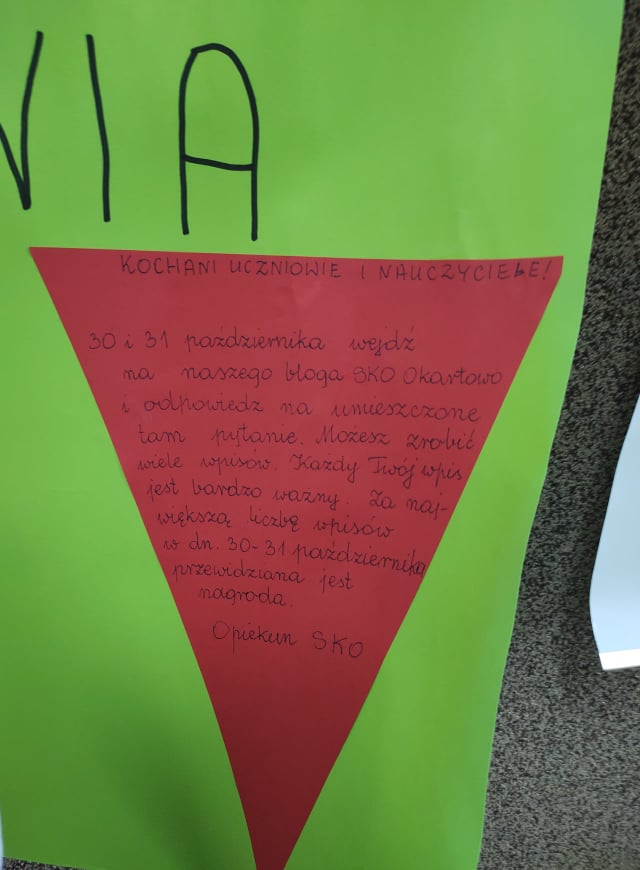 NIA
KOCHANI UCZNIOWIE I NAUCZYCIELE!
30 i 31 października wejdź
na naszego bloga SKO Okartowo
i odpowiedz na umieszczone
tam pytanie. Możesz zrobić
wiele wpisów. Każdy Twój wpis
jest bardzo ważny. Za naj-
większą liczbę wpisów
w dn. 30-31 października
przewidziana jest
nagroda.
Opiekun SKO